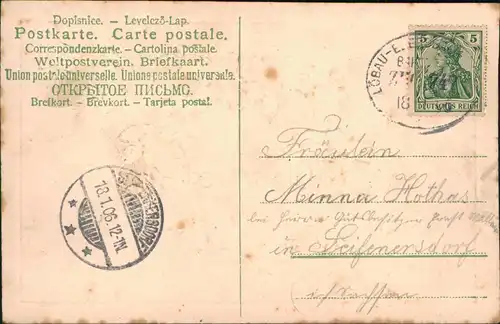 Dopisnice. — Levelező-Lap.
Postkarte. Carte postale.
Correspondenzkarte. — Cartolina postale.
Weltpostverein. Briefkaart.
Union postale universelle. Unione postale universale.
ОТКРЫТОЕ ПИСЬМО.
Brefkort. — Brevkort. — Tarjeta postal.
LÖBAU-E
5 5
DEUTSCHES REICH
18
18.1.06. 12-1N.
Fräulein
Minna Hothas
bei Herrn Gutsbesitzer
in Seifenersdorf